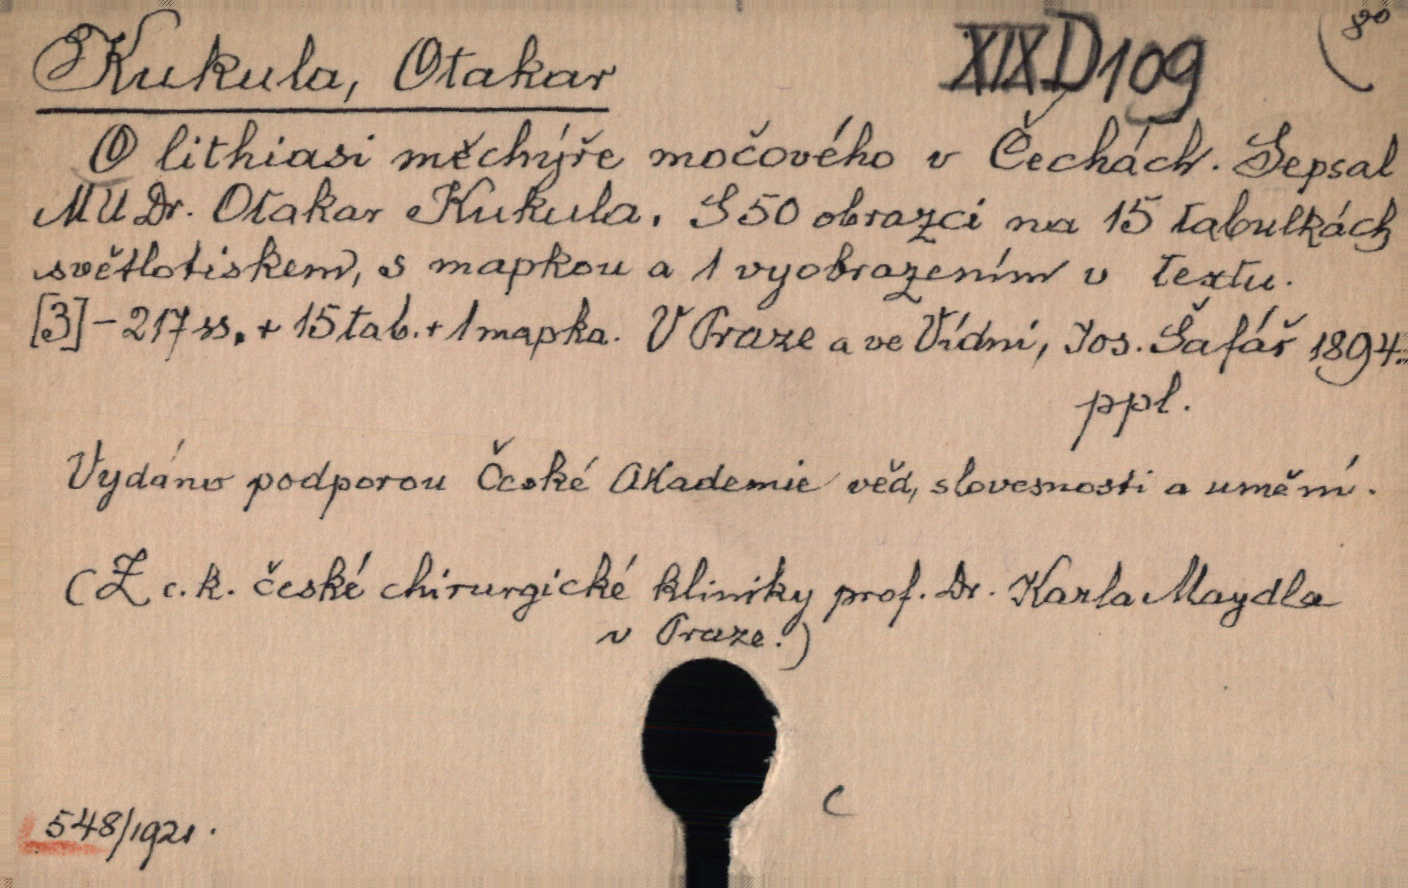 Kukula, Otakar XIX D 109 8°
O lithiasi měchýře močového v Čechách. Sepsal
MUDr. Otakar Kukula. S 50 obrazci na 15 tabulkách
světlotiskem, s mapkou a 1 vyobrazením v textu.
[3] - 217 ss. + 15 tab. + 1 mapka. V Praze a ve Vídni, Jos. Šafář 1894.
ppl.
Vydáno podporou České Akademie věd, slovesnosti a umění.
(Z c. k. české chirurgické kliniky prof. Dr. Karla Maydla
v Praze.)
C
548/1921.